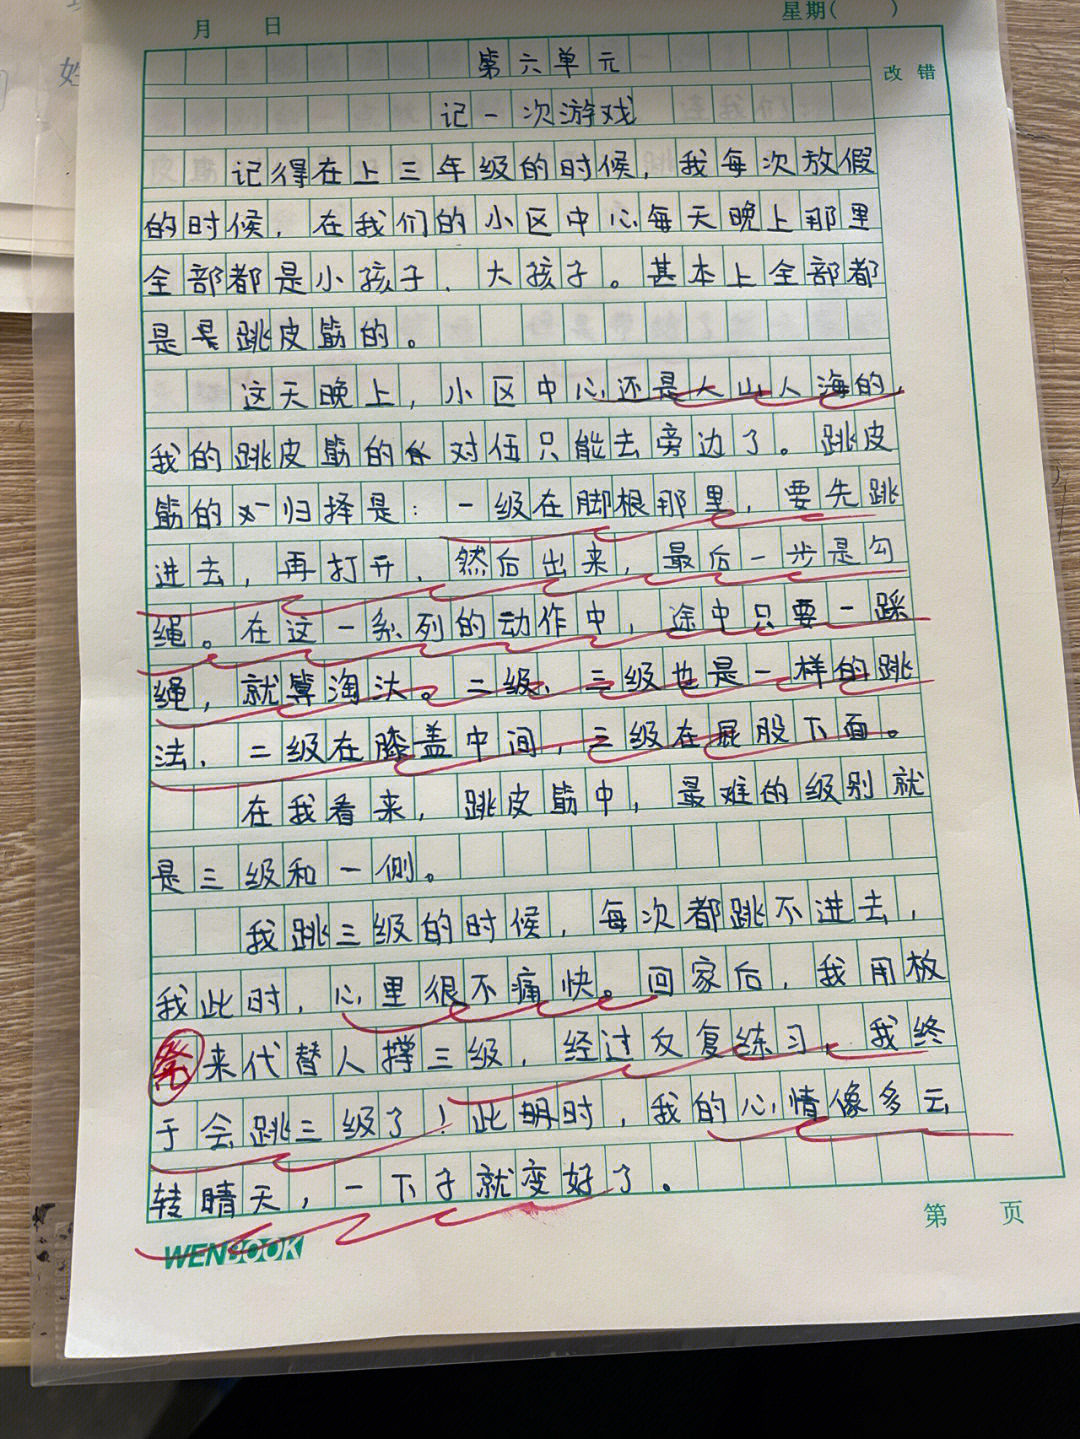 月 日 星期( )
改 错
第六单元
记一次游戏
记得在上三年级的时候，我每次放假
的时候，在我们的小区中心每天晚上那里
全部都是小孩子、大孩子。甚本上全部都
是是跳皮筋的。
这天晚上，小区中心还是人山人海的，
我的跳皮筋的对伍只能去旁边了。跳皮
筋的归择是：一级在脚根那里，要先跳
进去，再打开、然后出来，最后一步是勾
绳。在这一系列的动作中，途中只要一踩
绳，就算淘汰。二级、三级也是一样的跳
法、二级在膝盖中间，三级在屁股下面。
在我看来，跳皮筋中，最难的级别就
是三级和一侧。
我跳三级的时候，每次都跳不进去，
我此时，心里很不痛快。回家后，我用板
凳来代替人撑三级，经过反复练习、我终
于会跳三级了！此时，我的心情像多云
转晴天，一下子就变好了。
第 页
WENBOOK